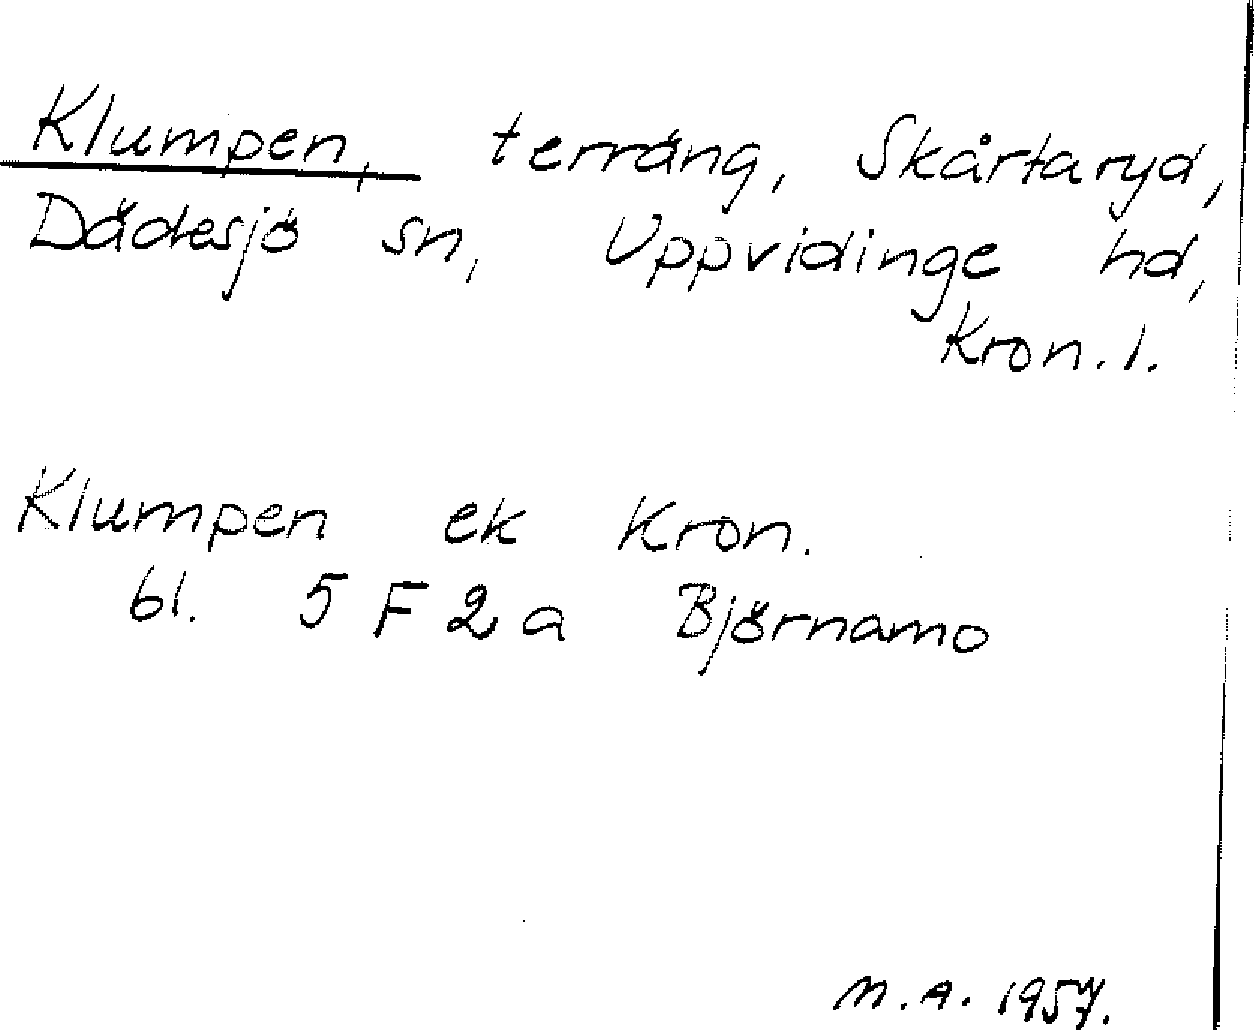 Klumpen, terräng, Skårtaryd,
Dädesjö sn, Uppvidinge hd,
Kron. l.
Klumpen ek Kron.
bl. 5 F 2 a Björnamo
M. A. 1957.